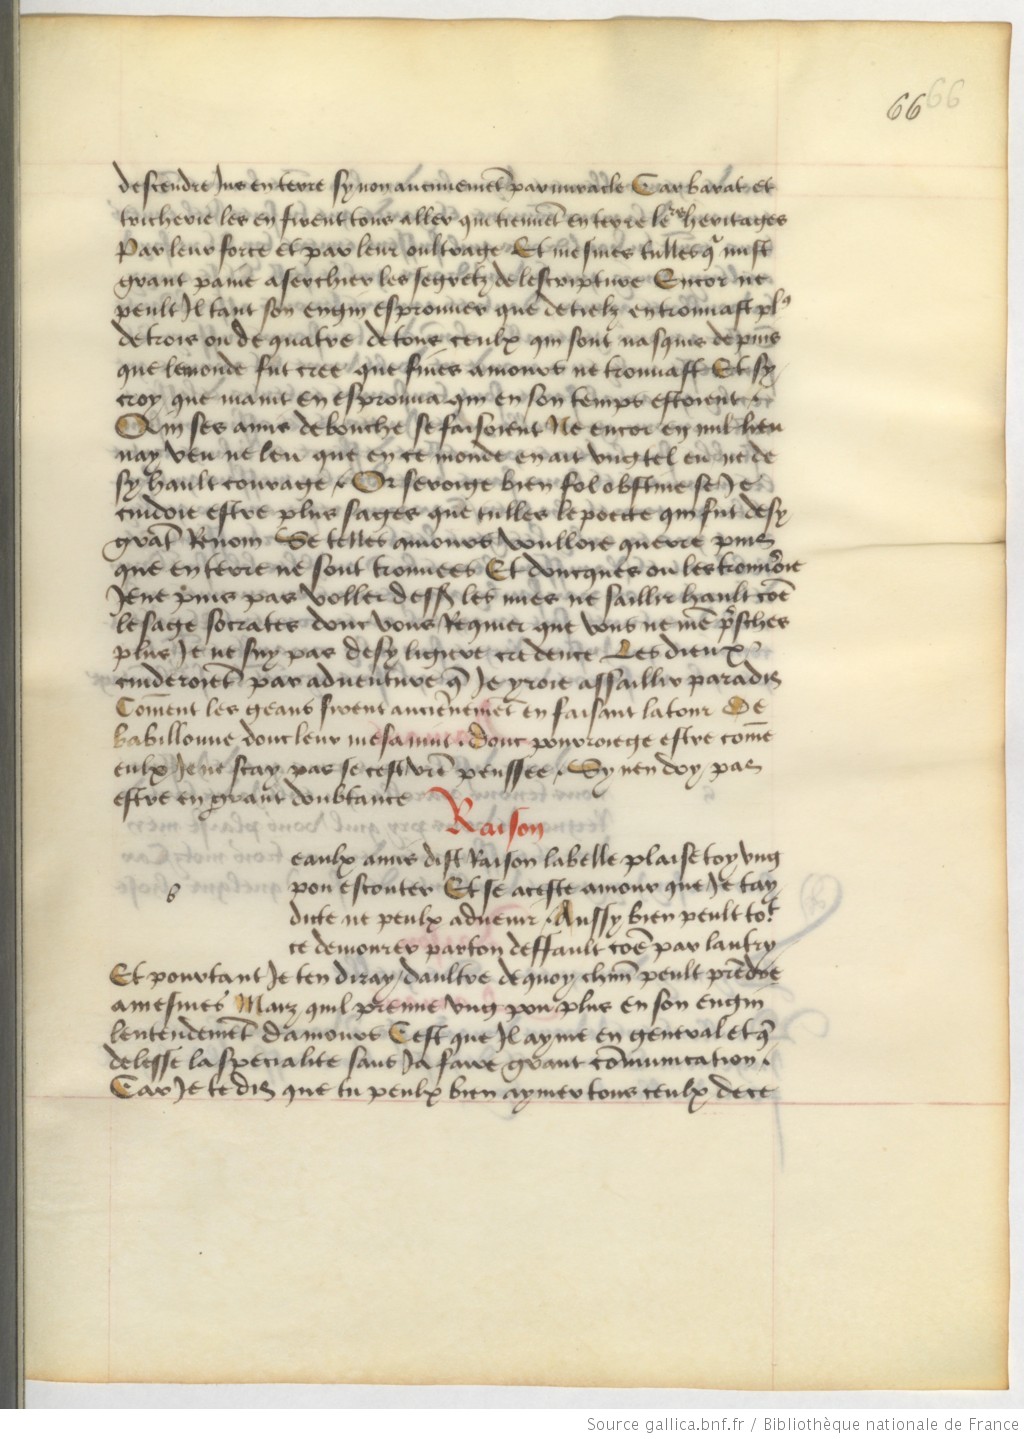 66 66
descendre Jus en terre sy non auenuemēt par miracle Car barat et
tricherie les en firent tous aller qui tiennēt en terre leᵘʳˢ heritages
Par leur force et par leur oultrage Et mesmes tulles q̄ mist
grant paine a serchier les segretz de lescripture Encor ne
peult Il tant son engin esprouuer que de tielz en trouuast pl9
de trois ou de quatre de tous ceulx qui sont nasquis de puis
que le monde fut cree que fines amours ne trouuast Et sy
croy que maint en esprouua qui en son temps estoient
Qui ses amis de bouche se faisoient Ne encor en nul lieu
nay veu ne leu que en ce monde en ait vng tel eu ne de
sy hault courage . Or seroige bien fol obstine se Je
cuidoie estre plus sages que tulles le poete qui fut de sy
grāt Renom Se telles amours voulloie querre puis
que en terre ne sont trouuees Et doncques ou les trouu'oie
Je ne puis pas voller dess9 les nues ne saillir hault cōe
le sage socrates dont vous Requier que vous ne mē p'sches
plus Je ne suy pas de sy ligiere credence Les dieux
cuideroiēt par aduenture q̄ Je yroie assaillir paradis
Cōment les geans firent anciēnemēt en faisant la tour De
babillonne dont leur mesauint . donc pourroiege estre cōme
eulx Je ne scay pas se cest vr̄e penssee . Sy nen doy pas
estre en grant doubtance
Raison
eaulx amis dist Raison la belle plaise toy vng
b
pou escouter Et se a ceste amour que Je tay
dicte ne peulx aduenir . Aussy bien peult toᵗ
ce demourer par ton deffault cōe par lautry
Et pourtant Je ten diray daultre de quoy chūn peult prēdre
a mesmes Maiz quil prenne vng pou plus en son engin
lentendemēt damours Cest que Il ayme en general et q̄
delesse la specialite sans Ja faire grant cōmunication .
Car Je te dis que tu peulx bien aymer tous ceulx de ce
Source gallica.bnf.fr / Bibliothèque nationale de France